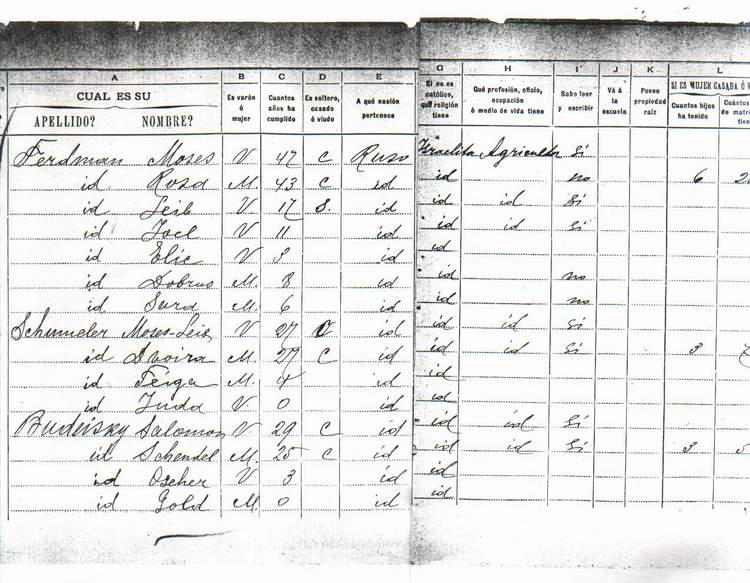 A B C D E G H I J K L
CUAL ES SU
APELLIDO? NOMBRE?
Es varón ó mujer
Cuantos años ha cumplido
Es soltero, casado ó viudo
A qué nación pertenece
Si no es católico, qué religión tiene
Qué profesión, oficio, ocupación ó medio de vida tiene
Sabe leer y escribir
Vá á la escuela
Posee propiedad raiz
SI ES MUJER CASADA Ó V
Cuantos hijos ha tenido
Cuántos de matri tiene
Ferdman Moses V 47 C Ruso Israelita Agricultor Si
id Rosa M. 43 C id id no 6 2
id Leib V 17 S. id id id Si
id Joel V 11 id id id Si
id Elie V 3 id id
id Dobrus M. 8 id id no
id Sara M. 6 id id no
Schumeler Moses-Leib V 27 C id id id Si
id Dvoira M. 27 C id id id Si 3
id Feiga M. 4 id id
id Juda V. 0 id id
Budeisky Salomon V 29 C id id id Si
id Schendel M. 25 C id id id Si 3
id Oscher V 3 id id
id Gold M. 0 id id